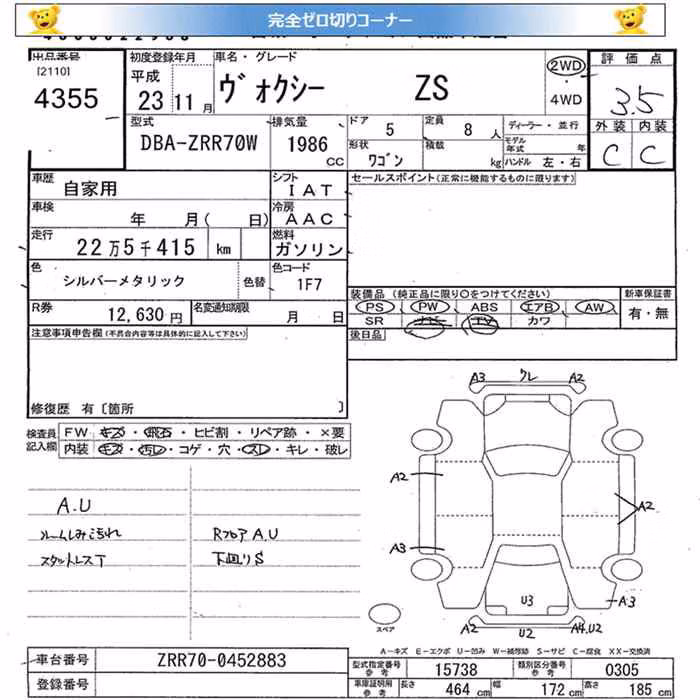 完全ゼロ切りコーナー
出品番号
[2110]
4355
初度登録年月
平成
23 11 月
車名・グレード
ヴォクシー ZS
2WD
・
4WD
評価点
3.5
外装 内装
C C
型式
DBA-ZRR70W
排気量
1986
CC
ドア 5
定員 8 人
形状 ワゴン
積載 kg
ディーラー・並行
モデル年式 年
ハンドル 左・右
車歴 自家用
シフト IAT
セールスポイント(正常に機能するものに限ります)
車検 年 月( 日)
冷房 AAC
走行 22万5千415 km
燃料 ガソリン
色 シルバーメタリック 色替
色コード 1F7
R券 12,630 円
名変通知期限 月 日
装備品 (純正品に限り〇をつけてください)
PS PW ABS エアB AW
SR ナビ TV カワ
新車保証書
有・無
後日品
注意事項申告欄(不具合内容等は具体的に記入して下さい)
修復歴 有〔箇所 〕
検査員
記入欄
FW キズ・飛石・ヒビ割・リペア跡・×要
内装 キズ・汚レ・コゲ・穴・スレ・キレ・破レ
A.U
ルームしみ汚れ
スタットレスT
RフロアA.U
下回りS
A3 クレ A2
A2
A2
A3
A3
U3
A2 U2 A4.U2
スペア
A-キズ E-エクボ U-凹み W-補修跡 S-サビ C-腐食 XX-交換済
車台番号 ZRR70-0452883
登録番号
型式指定番号
参考
15738
類別区分番号
参考
0305
車庫証明用
参考
長さ 464 cm
幅 172 cm
高さ 185 cm